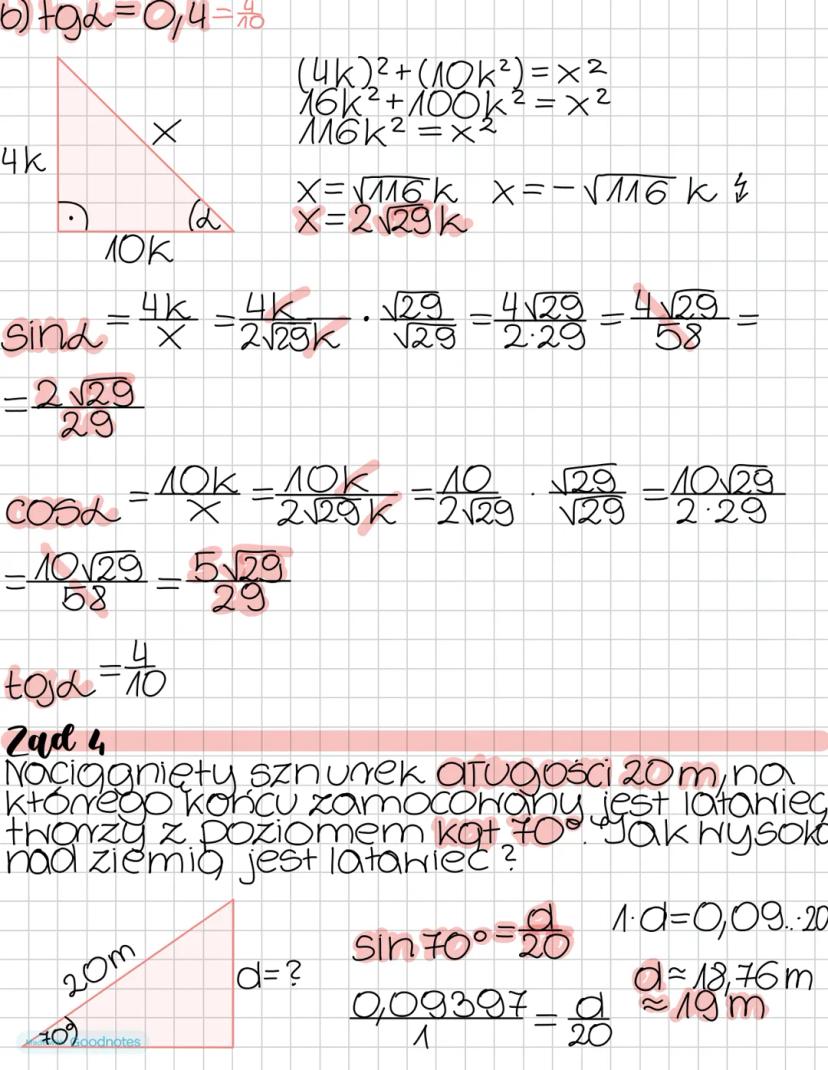 b) tgα = 0,4 = 4/10
(4k)² + (10k²) = x²
16k² + 100k² = x²
116k² = x²
x
4k
x = √116 k x = -√116 k ↯
x = 2√29 k
α
10k
sinα = 4k/x = 4k/2√29k · √29/√29 = 4√29/2·29 = 4√29/58 =
= 2√29/29
cosα = 10k/x = 10k/2√29k = 10/2√29 · √29/√29 = 10√29/2·29
= 10√29/58 = 5√29/29
tgα = 4/10
Zad 4
Naciągnięty sznurek długości 20 m, na
którego końcu zamocowany jest latawiec,
tworzy z poziomem kąt 70°. Jak wysoko
nad ziemią jest latawiec?
20m
d=?
70°
sin 70° = d/20
1·d = 0,09..·20
0,09397/1 = d/20
d ≈ 18,76 m
≈ 19 m
Goodnotes